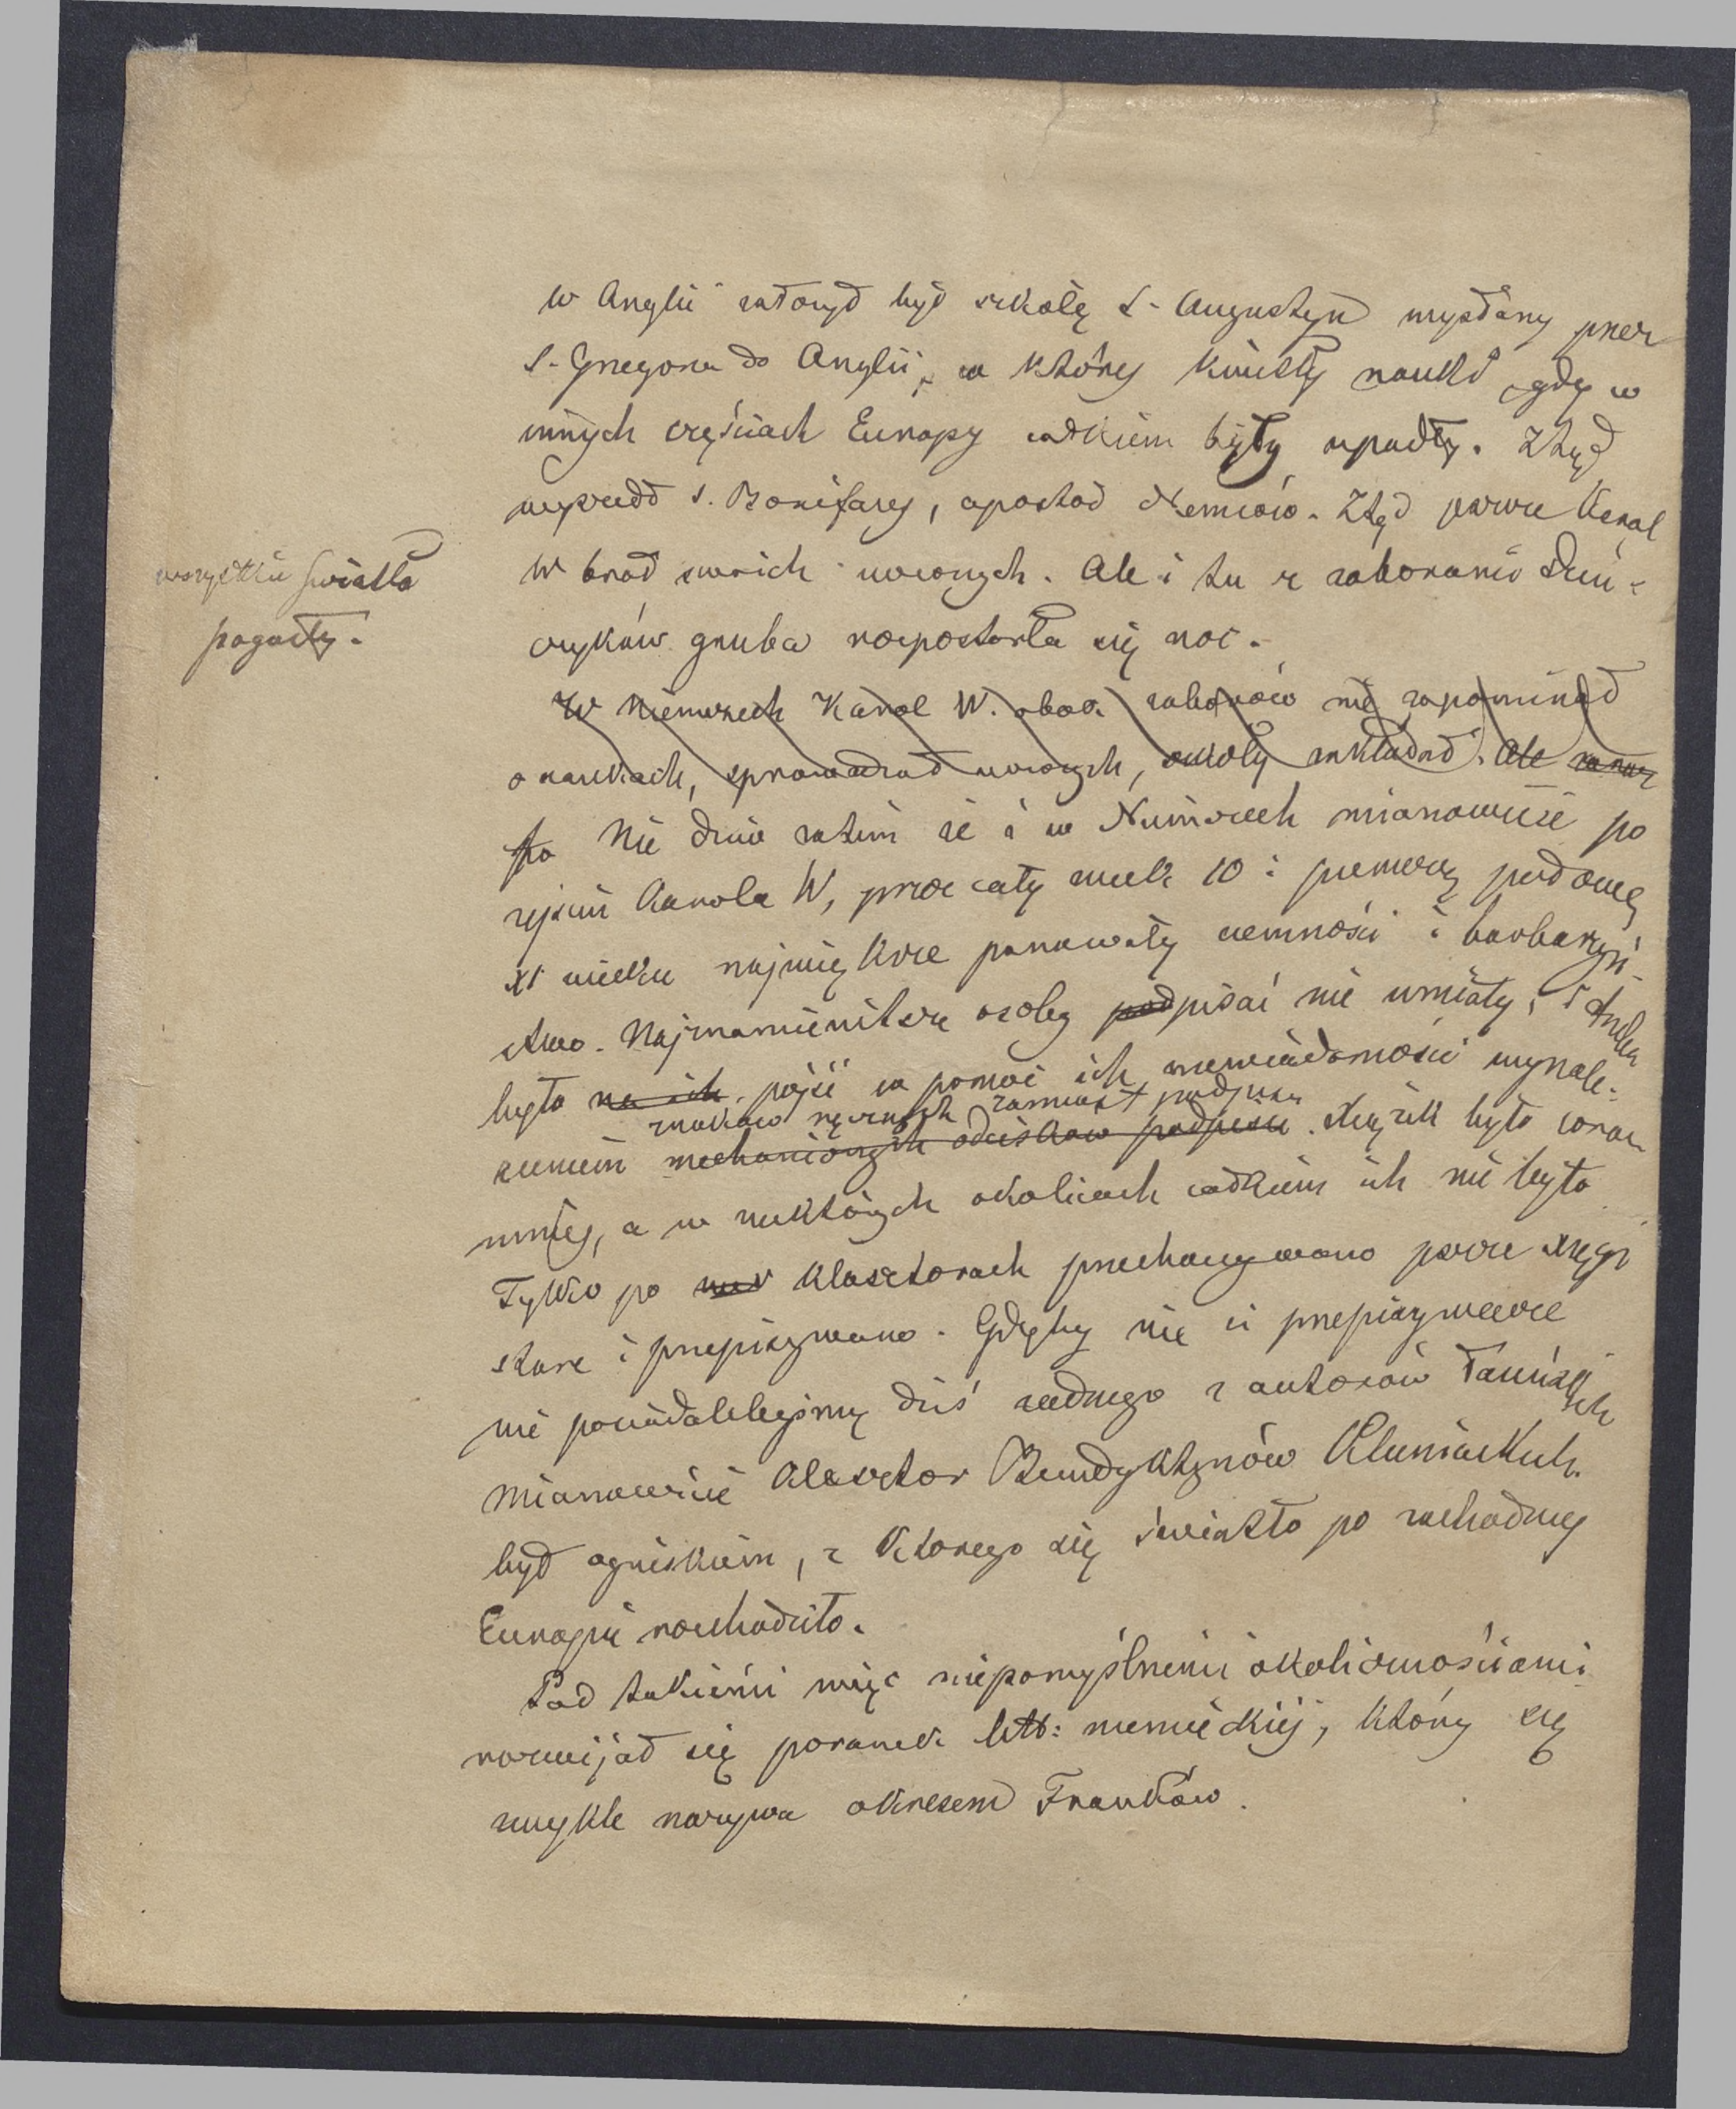 w Anglii założył był szkołę S. Augustyn wysłany przez
S. Grzegorza do Anglii, w której kwitły nauki gdy w
innych częściach Europy całkiem były upadły. Ztąd
wyszedł S. Bonifacy, apostoł Niemców. Ztąd potem Karol
W brał swoich uczonych. Ale i tu z zaborami Duń-
czyków gruba rozpostarła się noc.
wszystkie światła
pogasły.
W Niemczech Karol W. obok zaborów nie zapominał
o naukach, sprowadzał uczonych, szkoły zakładał. Ale zaraz
po Nie dziw zatem że i w Niemczech mianowicie po
zejściu Karola W, przez cały wiek 10 i pierwszą połowę
XI wieku największe panowały ciemności i barbarzyń-
stwo. Najznamienitsze osoby podpisać nie umiały, i trzeba
było na ich pójść w pomoc ich niewiadomości wynale-
znaków ręcznych zamiast podpisu
zieniem mechanicznych odcisków podpisu. Książek było coraz
mniej, a w niektórych okolicach całkiem ich nie było
Tylko po klasztorach przechowywano jeszcze księgi
stare i przepisywano. Gdyby nie ci przepisywacze
nie posiadalibyśmy dziś żadnego z autorów łacińskich
mianowicie klasztor Benedyktynów Kluniackich
był ogniskiem, z którego się światło po zachodniej
Europie rozchodziło.
Pod takiemi więc niepomyślnemi okolicznościami
rozwijał się poranek litt: niemieckiej, który się
zwykle nazywa okresem Franków.